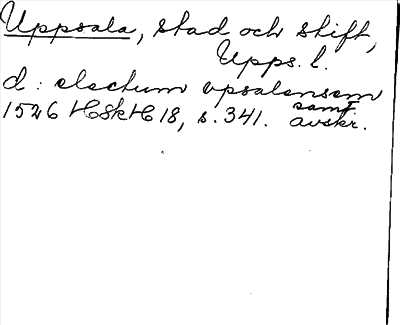 Uppsala, stad och stift,
Upps. l.
d: electum vpsalensem
1526 HSkH 18, s. 341. samt. avskr.